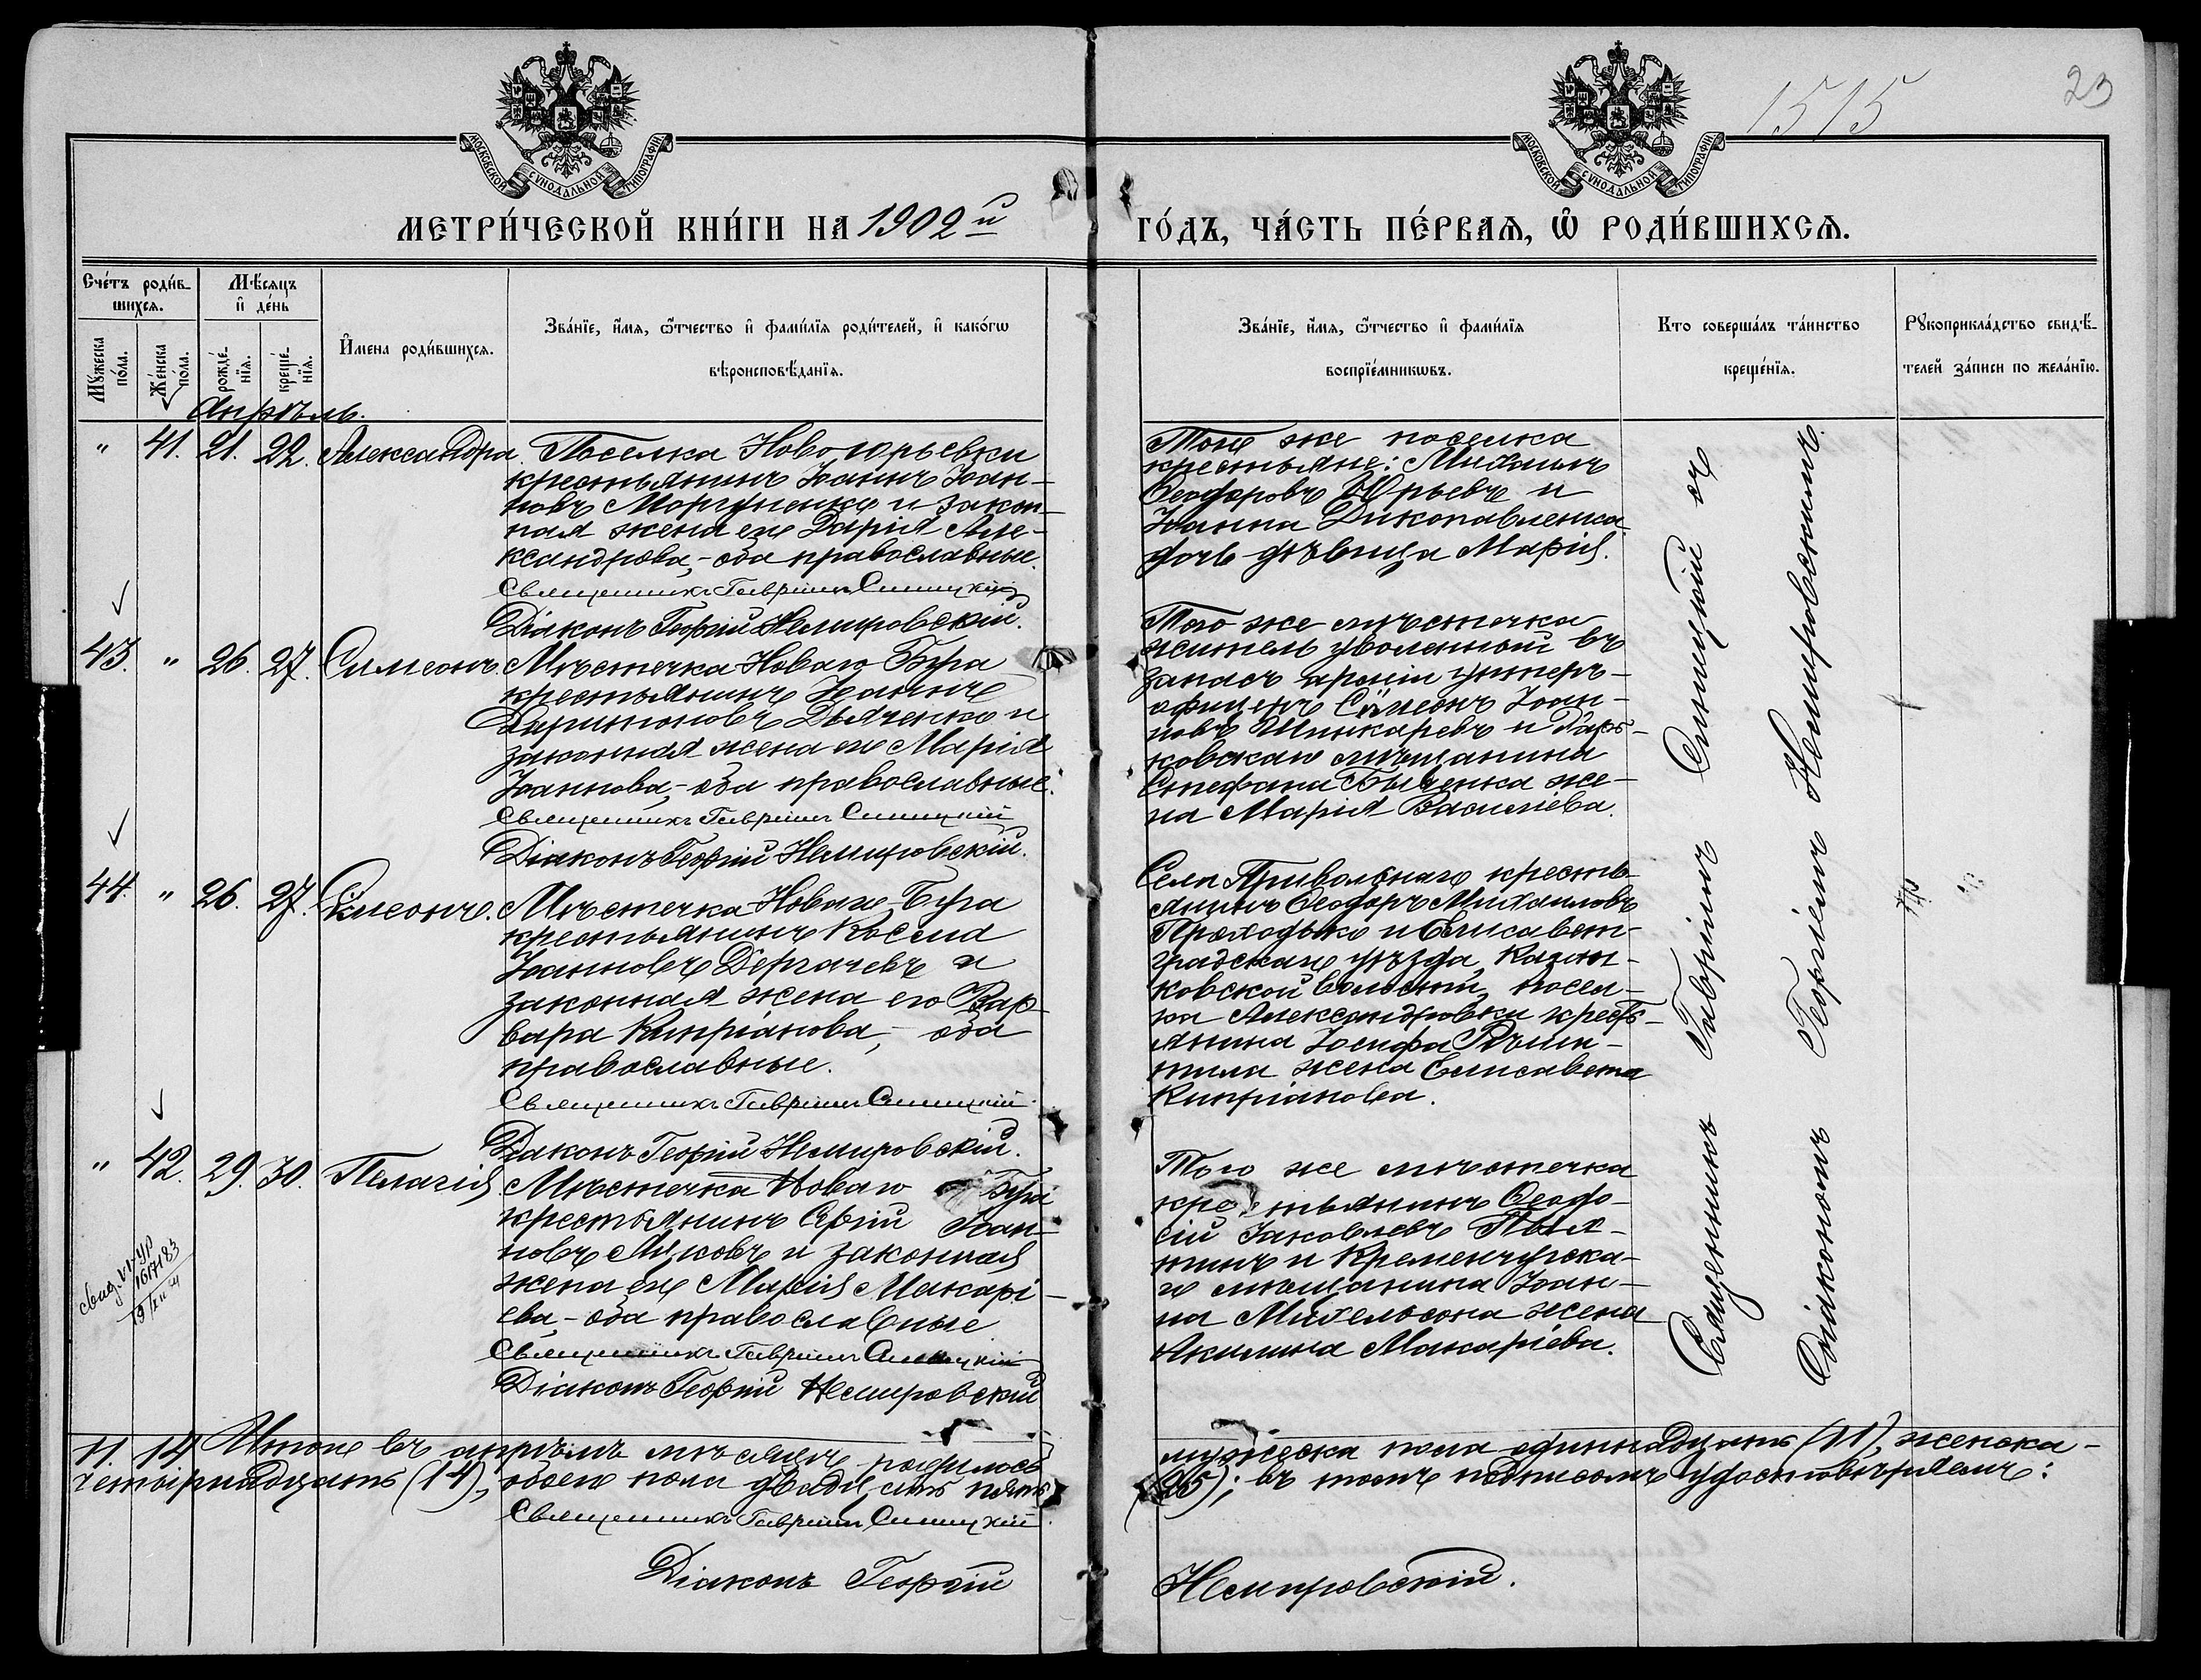 1515
23
МОСКОВСКОЙ СѴНОДАЛЬНОЙ ТИПОГРАФІИ
МОСКОВСКОЙ СѴНОДАЛЬНОЙ ТИПОГРАФІИ
МЕТРИ́ЧЕСКОЙ КНИ́ГИ НА 1902й
ГО́ДЪ, ЧА́СТЬ ПЕ́РВАѦ, Ѽ РОДИ́ВШИХСѦ.
Сче́тъ роди́в-
шихсѧ.
Мѣ́сѧцъ
и҆ де́нь
Мꙋ́жеска по́ла.
Же́нска по́ла.
рожде́-
нїѧ.
креще́-
нїѧ.
И҆мена роди́вшихсѧ.
Зва́нїе, и҆́мѧ, ѻ҆́тчество и҆ фами́лїѧ роди́телей, и҆ како́гѡ
вѣроисповѣ́данїѧ.
Зва́нїе, и҆́мѧ, ѻ҆́тчество и҆ фами́лїѧ
воспрїе́мникѡвъ.
Кто соверша́лъ та́инство
креще́нїѧ.
Рꙋкоприкла́дство свидѣ́-
телей за́писи по жела́нїю.
Апрѣль.
" 41. 21. 22. Александра. Поселка Новоюрьевки
крестьянинъ Іоаннъ Іоан-
новъ Моргуненко и закон-
ная жена его Дарія Але-
ксандрова,- оба православные.
Священникъ Гавріилъ Синицкій
Діаконъ Георгій Немировскій.
Того же поселка
крестьяне: Михаилъ
Ѳеодоровъ Юрьевъ и
Іоанна Дикопавленка
дочь дѣвица Марія.
43. " 26. 27. Симеонъ. Мѣстечка Новаго Буга
крестьянинъ Іоаннъ
Дяченко и
законная жена его Марія
Іоаннова,- оба православные.
Священникъ Гавріилъ Синицкій
Діаконъ Георгій Немировскій.
Того же мѣстечка
житель уволенный въ
запасъ арміи унтеръ-
офицеръ Сѵмеонъ Іоан-
новъ Шинкаревъ и Харь-
ковскаго мѣщанина
Стефана жe-
на Марія Василіева.
44. " 26. 27. Сѵмеонъ. Мѣстечка Новаго Буга
крестьянинъ Косма
Іоанновъ Дергачевъ и
законная жена его Вар-
вара Кипріанова,- оба
православные.
Священникъ Гавріилъ Синицкій
Діаконъ Георгій Немировскій.
Села Привольнаго кресть-
янинъ Ѳеодоръ Михаиловъ
Проходько и Елисавет-
градскаго уѣзда,
ковской волости, посел-
ка Александровки кресть-
янина Іосифа
жена Елисавета
Кипріанова.
" 42. 29. 30. Пелагія. Мѣстечка Новаго Буга
крестьянинъ Сергій Іоан-
новъ и законная
жена его Марія Макарі-
ева,- оба православные
Священникъ Гавріилъ Синицкій
Діаконъ Георгій Немировскій
Того же мѣстечка
крестьянинъ Ѳеодо-
сій Іаковлевъ
и Кременчугска-
го мѣщанина Іоан-
на Михельсона жена
Акилина Макаріева.
Священникъ Гавріилъ Синицкій съ
Діакономъ Георгіемъ Немировскимъ.
свид. № УР
161783
19/XII
11. 14. Итого въ апрѣлѣ мѣсяцѣ родилось
мужеска пола одиннадцать (11), женска-
четырнадцать (14), обоего пола двадцать пять
(25); въ томъ подписомъ удостовѣряемъ:
Священникъ Гавріилъ Синицкій.
Діаконъ Георгій
Немировскій.